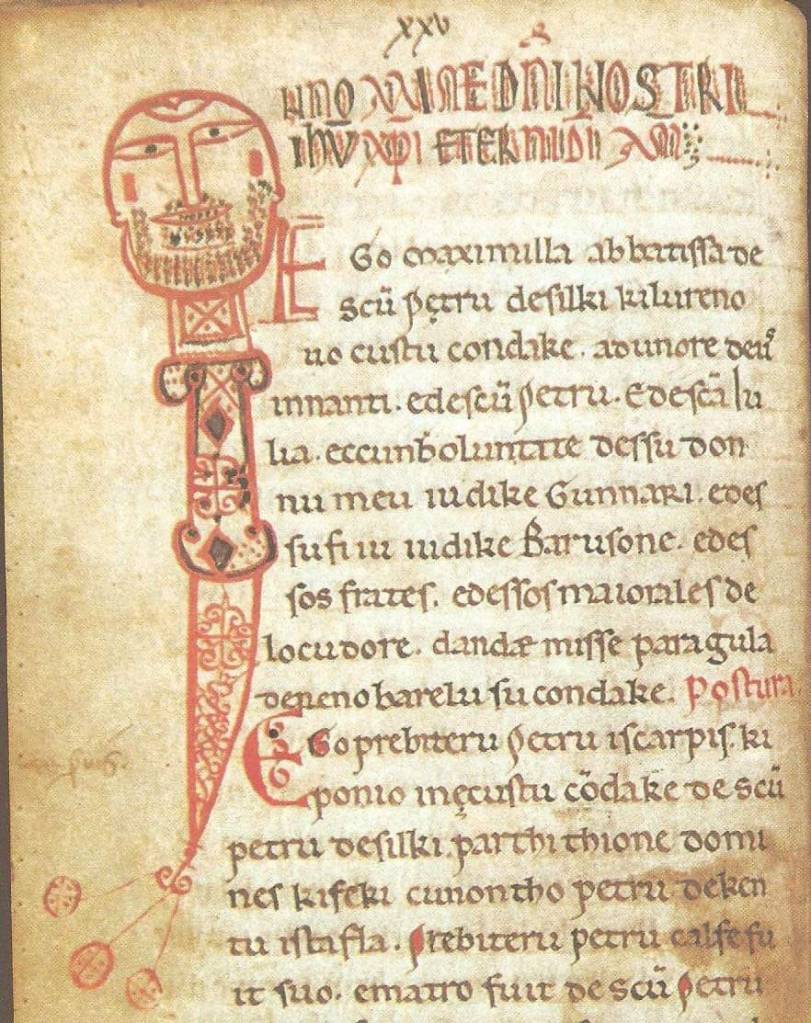 xxv
INNOMINE DN̄I NOSTRI
IHV XPI ETERNI DI AM̄
EGo maximilla abbatissa de
scū pętru desilki kilureno
uo custu condake. adunore deuˢ
innanti. edescū petru. Edescā Iu
lia. eccunboluntate dessu don
nu meu iudike Gunnari. edes
su fiiu iudike Barusone. edes
sos frates. edessos maiorales de
locudore. dandæ misse paragula
derenobarelu su condake. Postura
EGo prebiteru petru iscarpis. ki
ponio inęcustu cōdake de scū
petru desilki. parthithione domi
nes kifeki cunontho petru deken
tu istafla. Prebiteru petru calfe fu
it suo. ematro fuit de scū petru